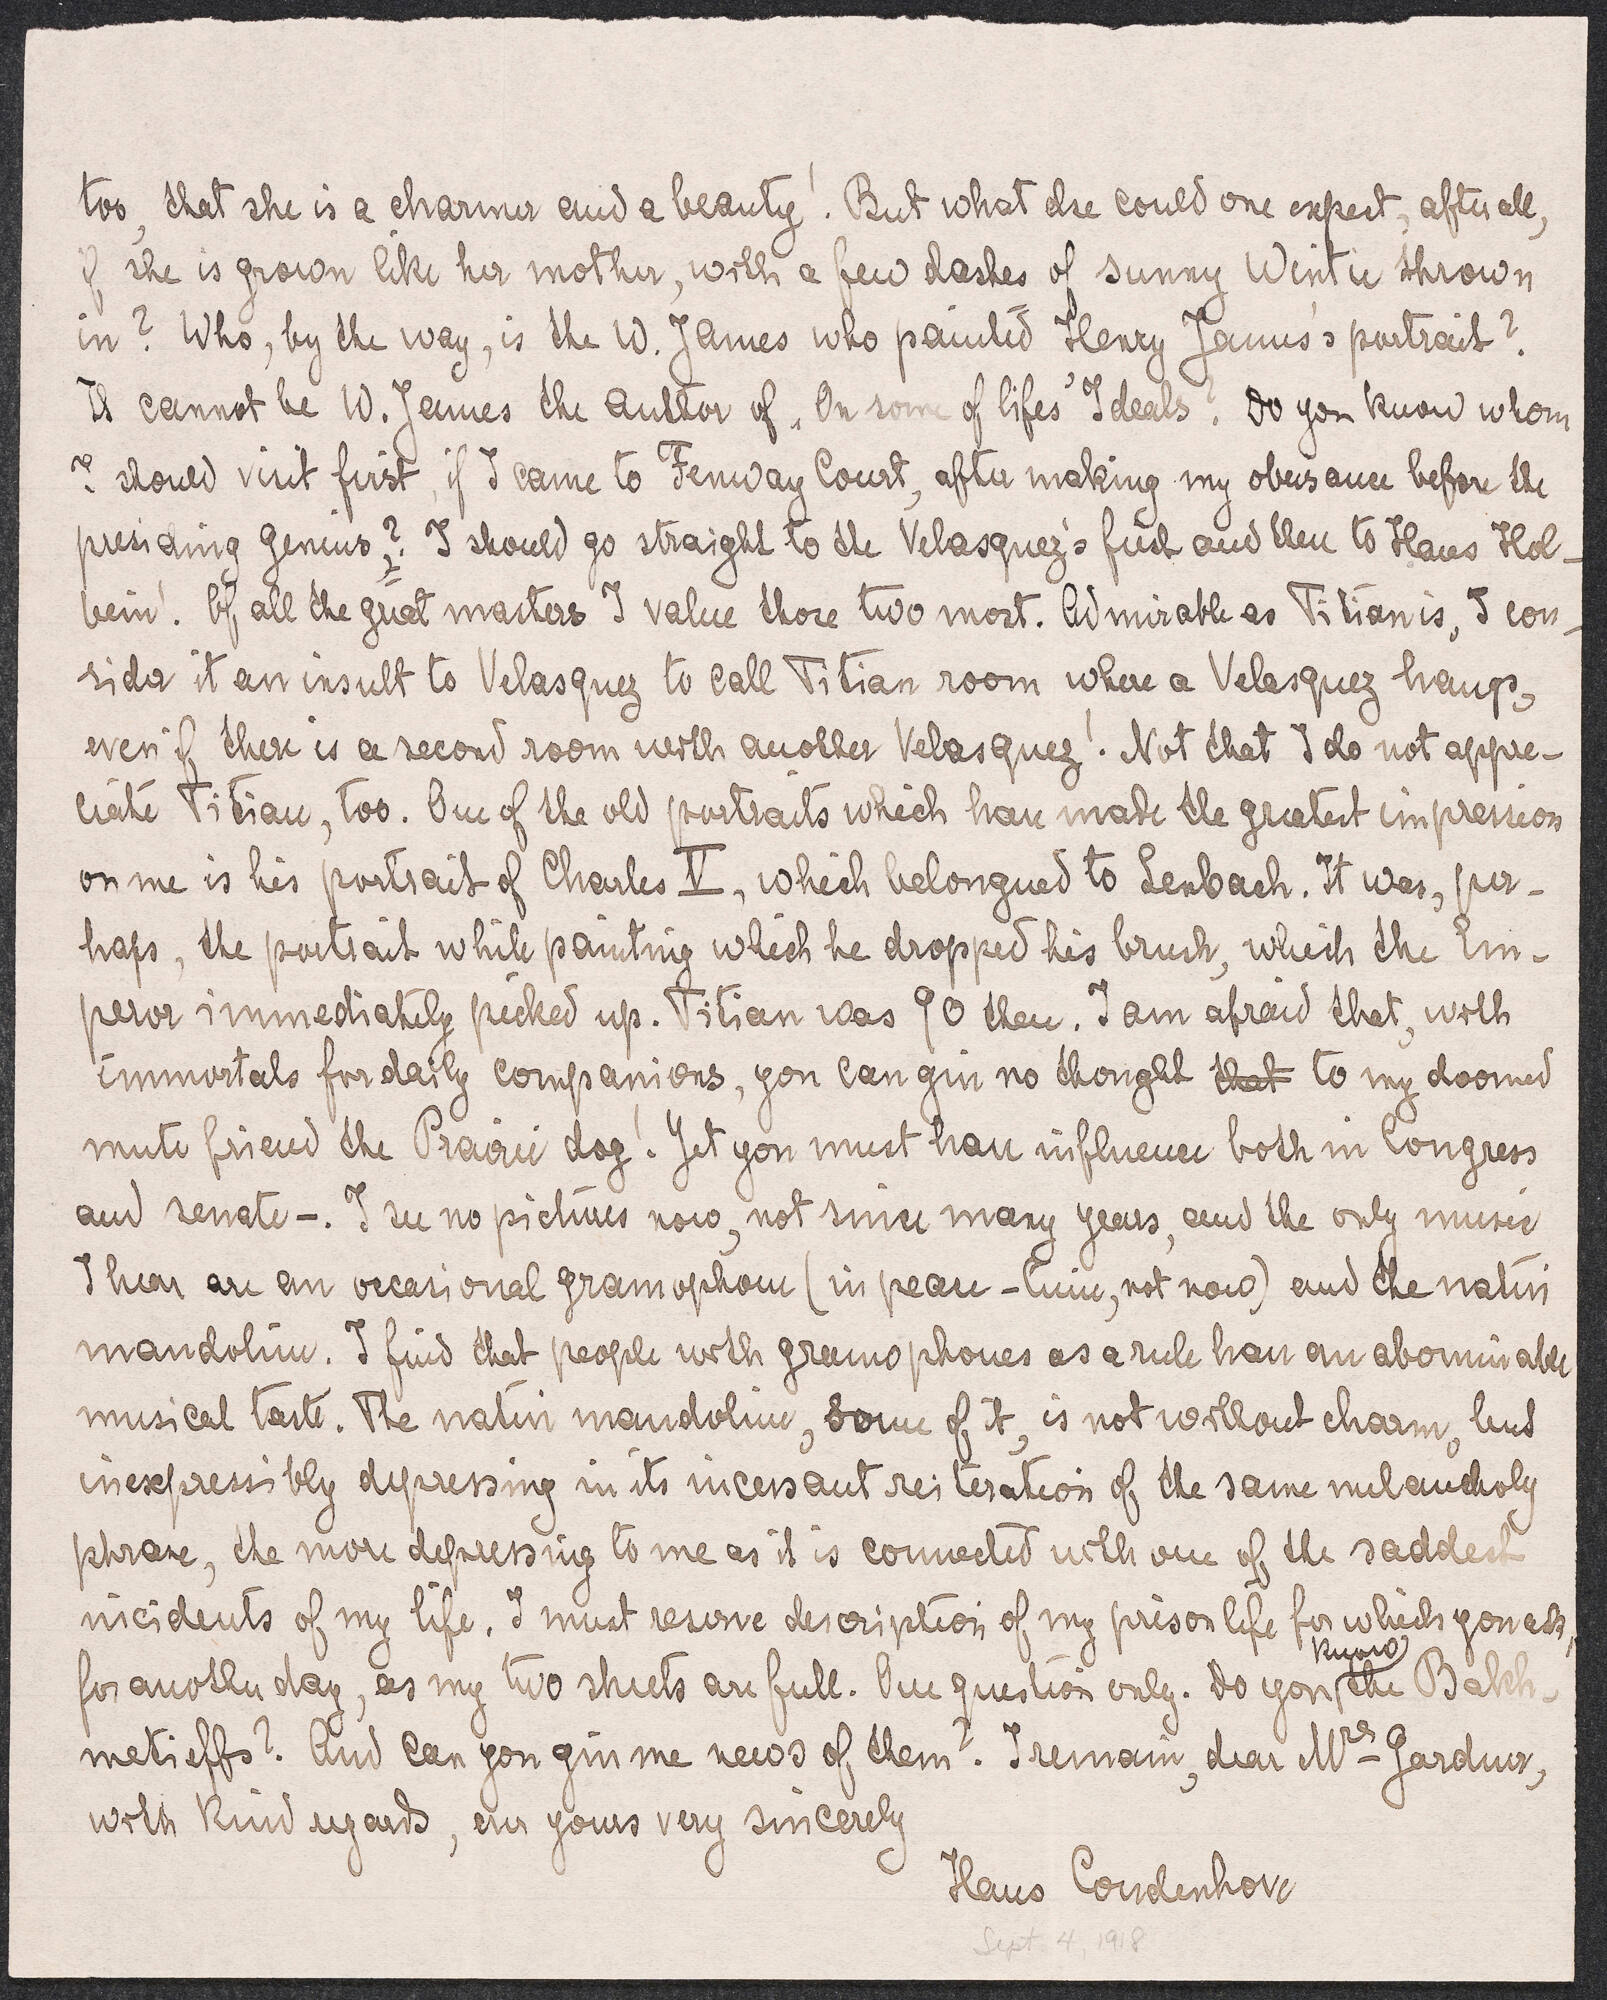 too, that she is a charmer and a beauty! But what else could one expect, after all,
if she is grown like her mother, with a few dashes of sunny Wintie thrown
in? Who, by the way, is the W. James who painted Henry James's portrait?
It cannot be W. James the author of „On some of lifes' Ideals"? Do you know whom
I should visit first, if I came to Fenway Court, after making my obeisance before the
presiding Genius? I should go straight to the Velasquez's first and then to Hans Hol-
bein! Of all the great masters I value those two most. Admirable as Titian is, I con-
sider it an insult to Velasquez to call Titian room where a Velasquez hangs,
even if there is a second room with another Velasquez! Not that I do not appre-
ciate Titian, too. One of the old portraits which have made the greatest impression
on me is his portrait of Charles V, which belongued to Lenbach. It was, per-
haps, the portrait while painting which he dropped his brush, which the Em-
peror immediately picked up. Titian was 90 then. I am afraid that, with
immortals for daily companions, you can give no thought that to my doomed
mute friend the Prairie dog! Yet you must have influence both in Congress
and senate -. I see no pictures now, not since many years, and the only music
I hear are an occasional gramophone (in peace-time, not now) and the native
mandoline. I find that people with gramophones as a rule have an abominable
musical taste. The native mandoline, some of it, is not without charm, but
inexpressibly depressing in its incessant reiteration of the same melancholy
phrase, the more depressing to me as it is connected with one of the saddest
incidents of my life. I must reserve description of my prison life for which you ask,
for another day, as my two sheets are full. One question only. Do you know the Bakh-
metieffs? And can you give me news of them? I remain, dear Mrs Gardner,
with kind regards, ever yours very sincerely
Hans Coudenhove
Sept. 4, 1918